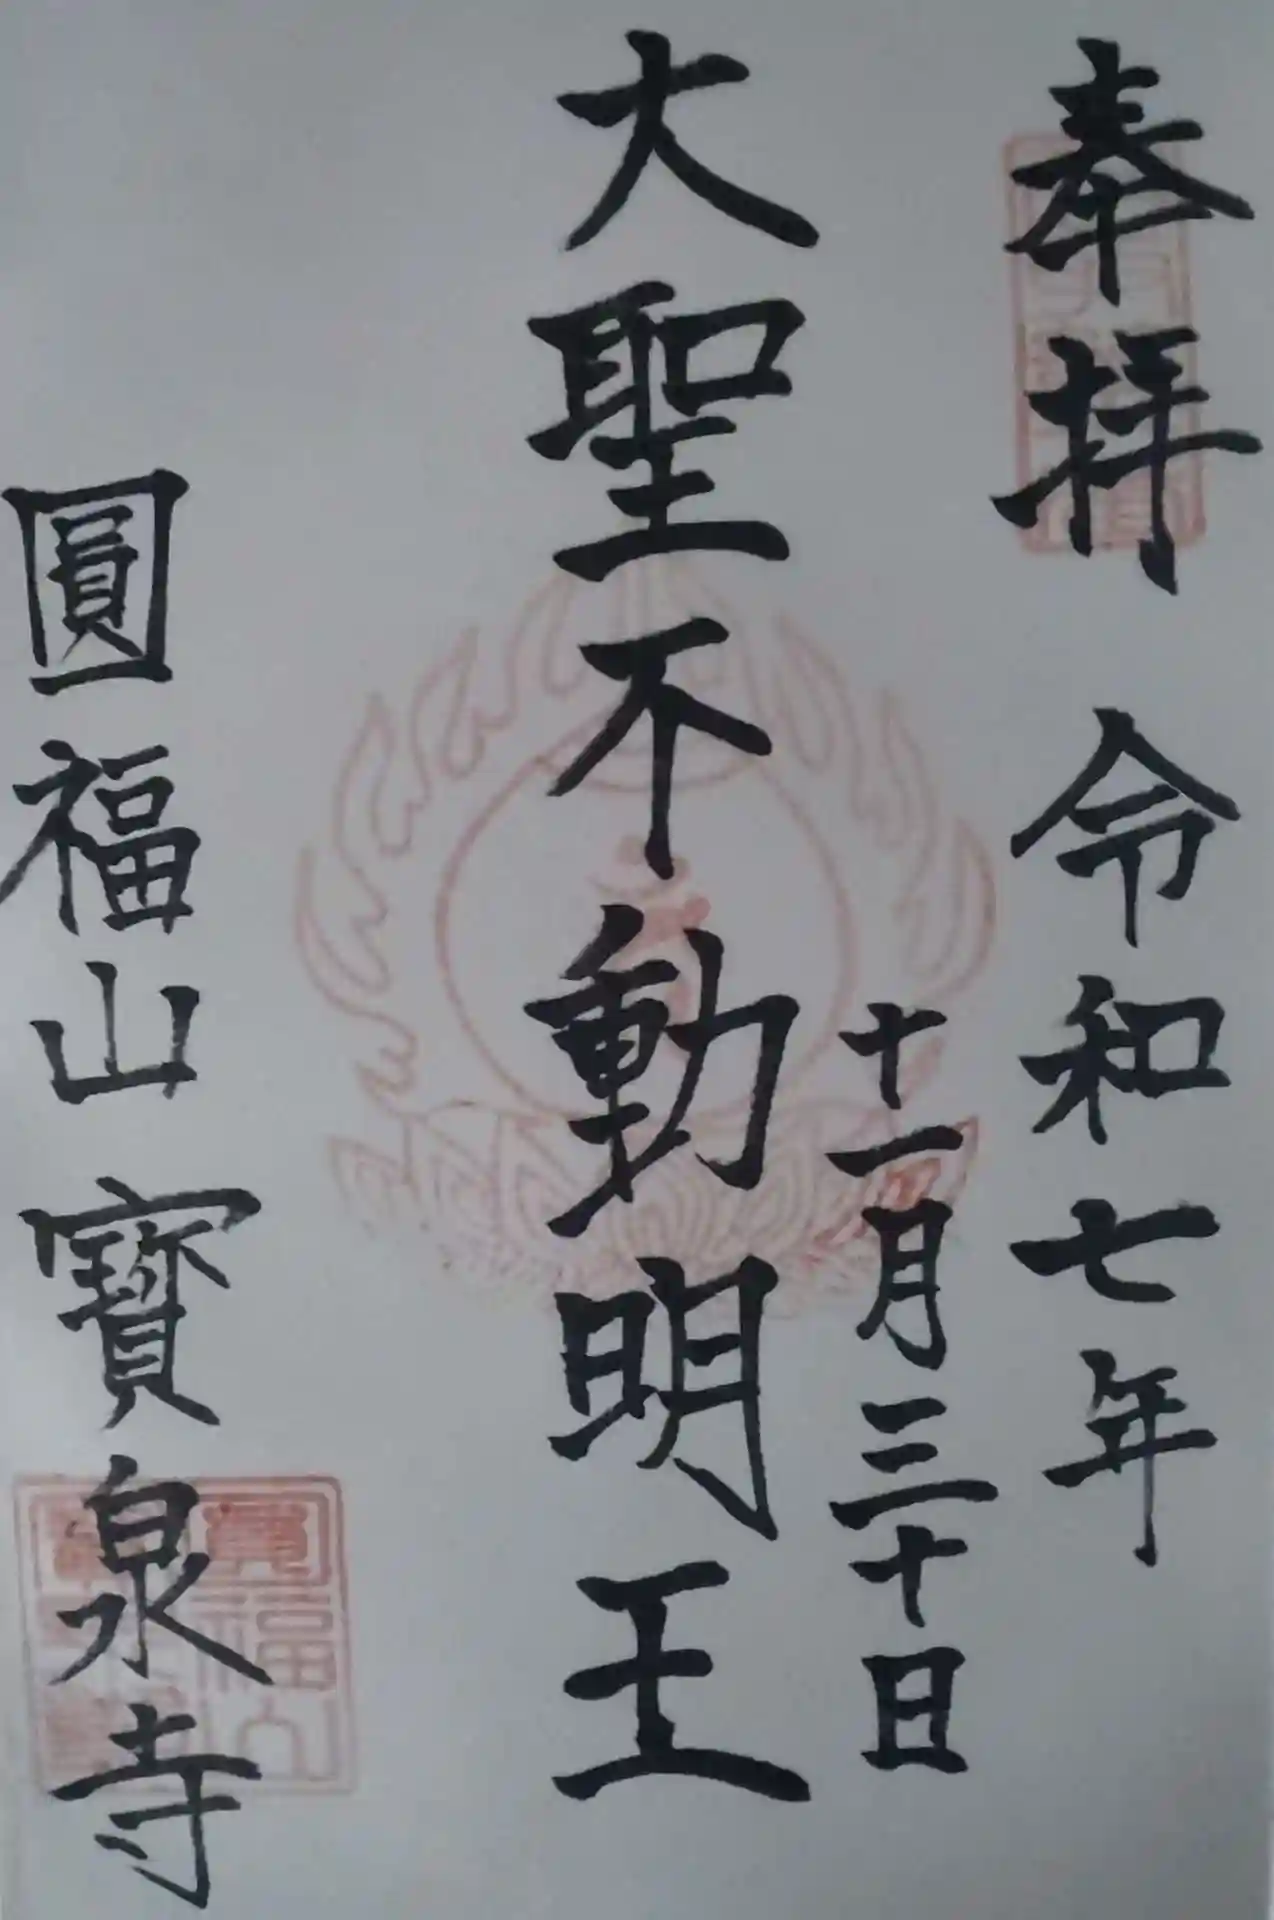 奉拝 令和七年
十一月三十日
大聖不動明王
圓福山 寳泉寺